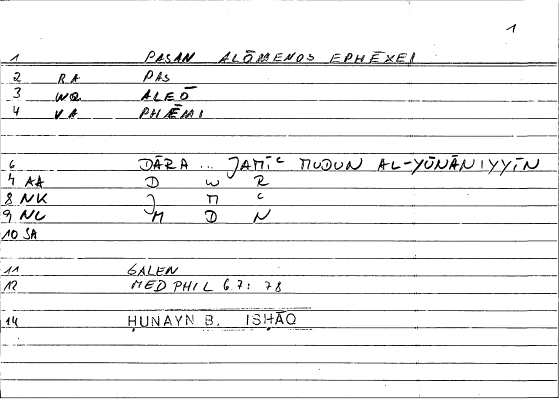 1
1 PASAN ALŌMENOS EPHĒXEI
2 RA PAS
3 WQ ALEŌ
4 VA PHĒMI
6 DĀRA ... JAMĪC MUDUN AL-YŪNĀNIYYĪN
7 AA D W R
8 NK J M C
9 NU M D N
10 SA
11 GALEN
12 MED PHIL 6.7: 78
14 ḤUNAYN B. ISḤĀQ